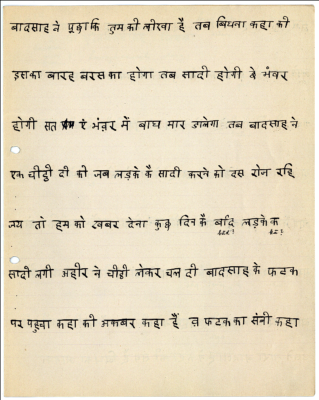 बादसाह ने पूछा कि तुम की लीखा है तब बिधना कहा की
इसका बारह बरस का होगा तब सादी होगी दे भंवर
होगी सत ऐ भंव़र में बाघ मार डालेगा तब बादसाह ने
एक चीठ्ठी दी की जब लड़के कै सादी करने को दस रोज रहि
जय तो हम को खबर देना कुछ दिन कै बाद लड़के क
सादी लगी अहीर ने चीठ्ठी लेकर चल दी बादसाह के फटक
पर पहुचा कहा की अकबर कहा हैं व़ फटक का संत्री कहा